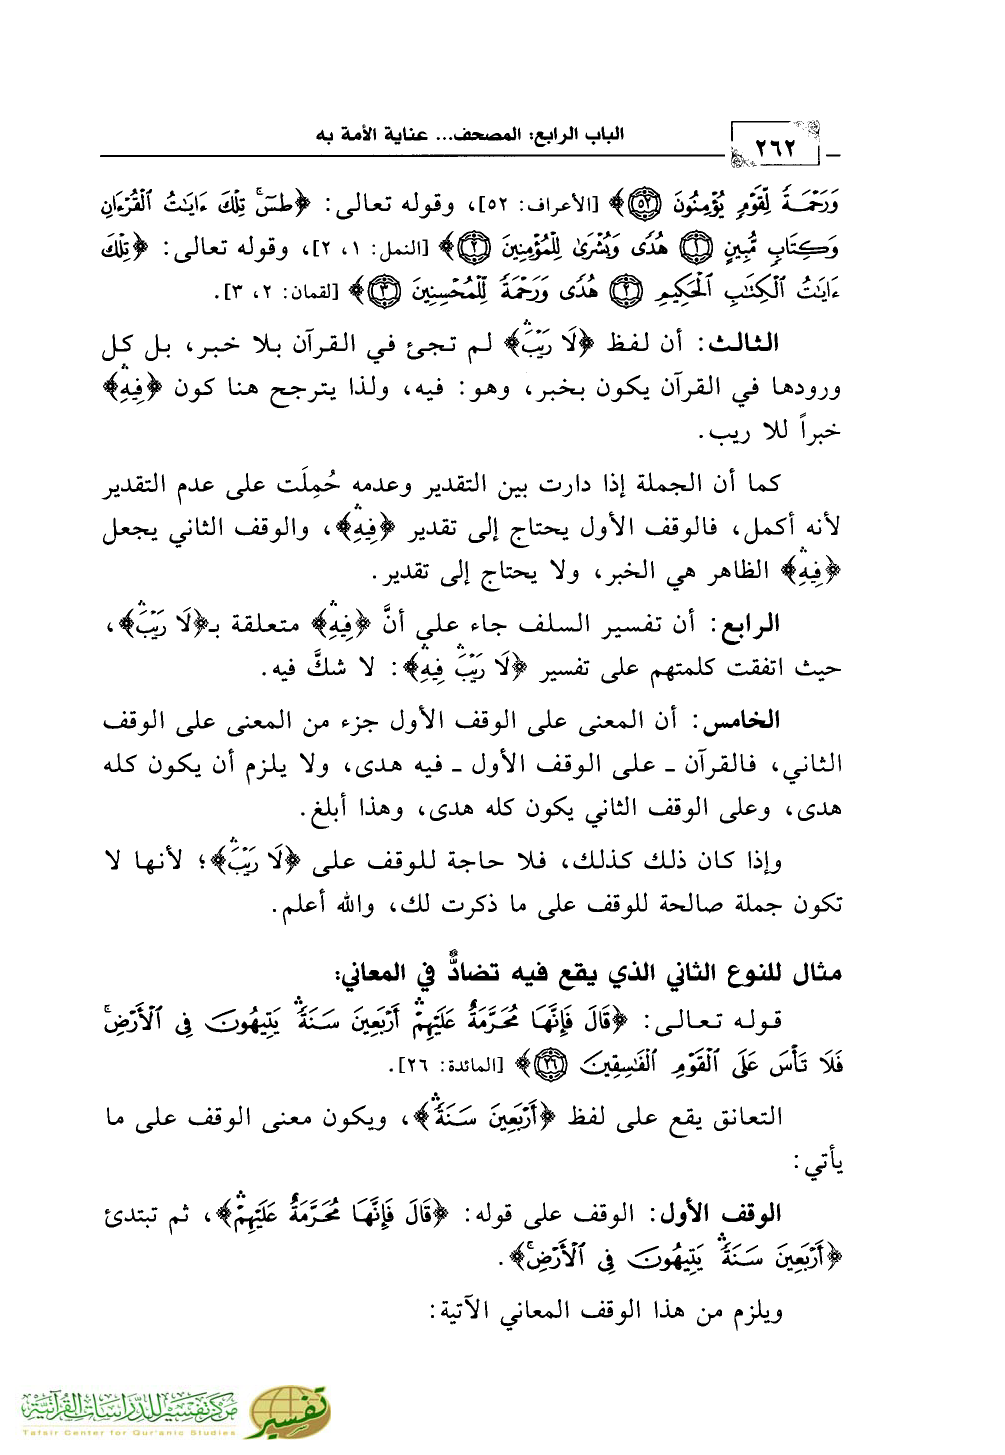 ٢٦٢
الباب الرابع: المصحف... عناية الأمة به
وَرَحْمَةً لِّقَوْمٍ يُؤْمِنُونَ ٥٢﴾ [الأعراف: ٥٢]، وقوله تعالى: ﴿طسٓۚ تِلْكَ ءَايَٰتُ ٱلْقُرْءَانِ
وَكِتَابٍ مُّبِينٍ ١ هُدًى وَبُشْرَىٰ لِلْمُؤْمِنِينَ ٢﴾ [النمل: ١، ٢]، وقوله تعالى: ﴿تِلْكَ
ءَايَٰتُ ٱلْكِتَٰبِ ٱلْحَكِيمِ ٢ هُدًى وَرَحْمَةً لِّلْمُحْسِنِينَ ٣﴾ [لقمان: ٢، ٣].
الثالث: أن لفظ ﴿لَا رَيْبَۛ﴾ لم تجئ في القرآن بلا خبر، بل كل
ورودها في القرآن يكون بخبر، وهو: فيه، ولذا يترجح هنا كون ﴿فِيهِۛ﴾
خبراً للا ريب.
كما أن الجملة إذا دارت بين التقدير وعدمه حُمِلَت على عدم التقدير
لأنه أكمل، فالوقف الأول يحتاج إلى تقدير ﴿فِيهِۛ﴾، والوقف الثاني يجعل
﴿فِيهِۛ﴾ الظاهر هي الخبر، ولا يحتاج إلى تقدير.
الرابع: أن تفسير السلف جاء على أنَّ ﴿فِيهِۛ﴾ متعلقة بـ﴿لَا رَيْبَۛ﴾،
حيث اتفقت كلمتهم على تفسير ﴿لَا رَيْبَۛ فِيهِۛ﴾: لا شكَّ فيه.
الخامس: أن المعنى على الوقف الأول جزء من المعنى على الوقف
الثاني، فالقرآن ـ على الوقف الأول ـ فيه هدى، ولا يلزم أن يكون كله
هدى، وعلى الوقف الثاني يكون كله هدى، وهذا أبلغ.
وإذا كان ذلك كذلك، فلا حاجة للوقف على ﴿لَا رَيْبَۛ﴾؛ لأنها لا
تكون جملة صالحة للوقف على ما ذكرت لك، والله أعلم.
مثال للنوع الثاني الذي يقع فيه تضادٌّ في المعاني:
قوله تعالى: ﴿قَالَ فَإِنَّهَا مُحَرَّمَةٌ عَلَيْهِمْۛ أَرْبَعِينَ سَنَةًۛ يَتِيهُونَ فِى ٱلْأَرْضِۚ
فَلَا تَأْسَ عَلَى ٱلْقَوْمِ ٱلْفَٰسِقِينَ ٢٦﴾ [المائدة: ٢٦].
التعانق يقع على لفظ ﴿أَرْبَعِينَ سَنَةًۛ﴾، ويكون معنى الوقف على ما
يأتي:
الوقف الأول: الوقف على قوله: ﴿قَالَ فَإِنَّهَا مُحَرَّمَةٌ عَلَيْهِمْۛ﴾، ثم تبتدئ
﴿أَرْبَعِينَ سَنَةًۛ يَتِيهُونَ فِى ٱلْأَرْضِۚ﴾.
ويلزم من هذا الوقف المعاني الآتية:
مركز تفسير للدراسات القرآنية
Tafsir Center for Qur'anic Studies
تفسير